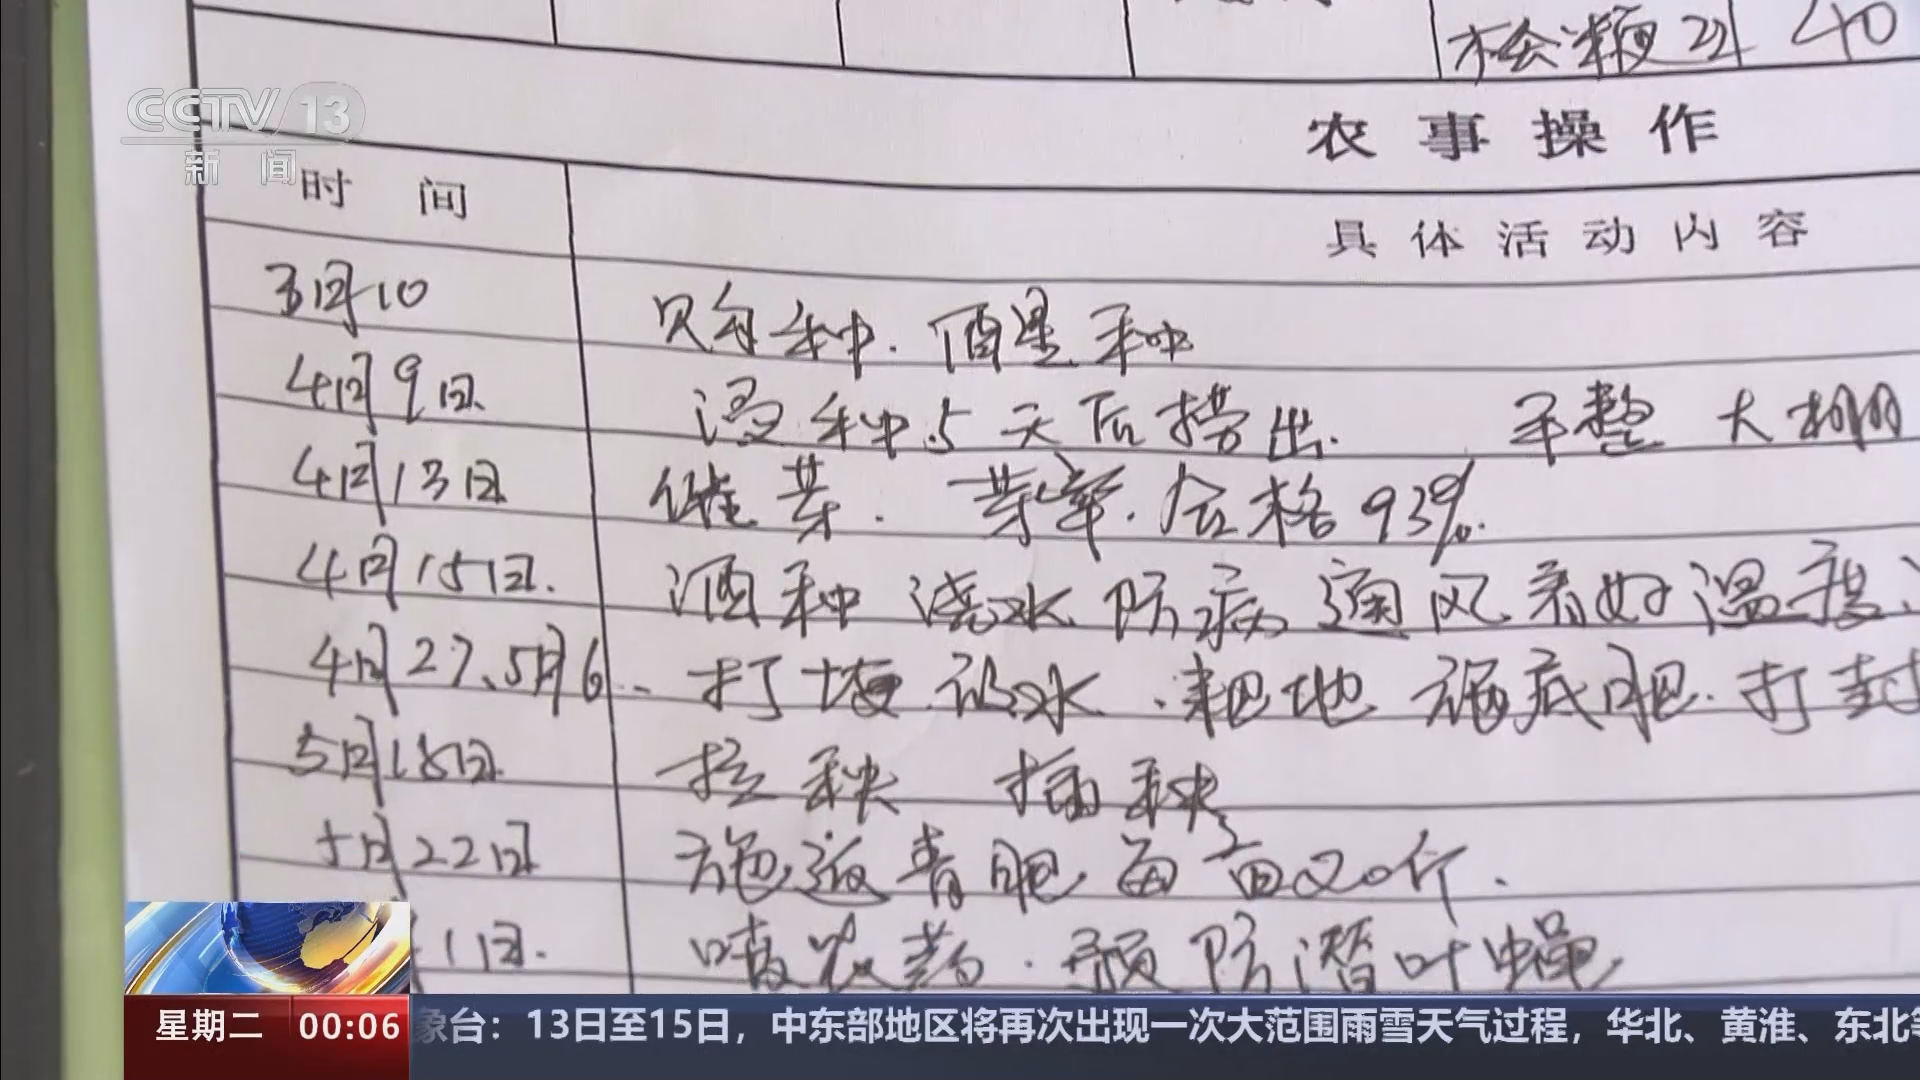 40
农事操作
CCTV 13
新闻
时间
具体活动内容
3月10
购种.
种
4月9日
浸种5天后捞出. 平整大棚
4月13日
催芽. 芽率.合格93%.
4月15日.
洒种浇水防病通风看好温度
4月27、5月6 打埂 水.耙地施底肥.打封
5月18日
拉秧 插秧
5月22日
施返青肥每亩20斤.
1日.
喷农药.预防潜叶蝇
星期二 00:06
象台：13日至15日，中东部地区将再次出现一次大范围雨雪天气过程，华北、黄淮、东北等